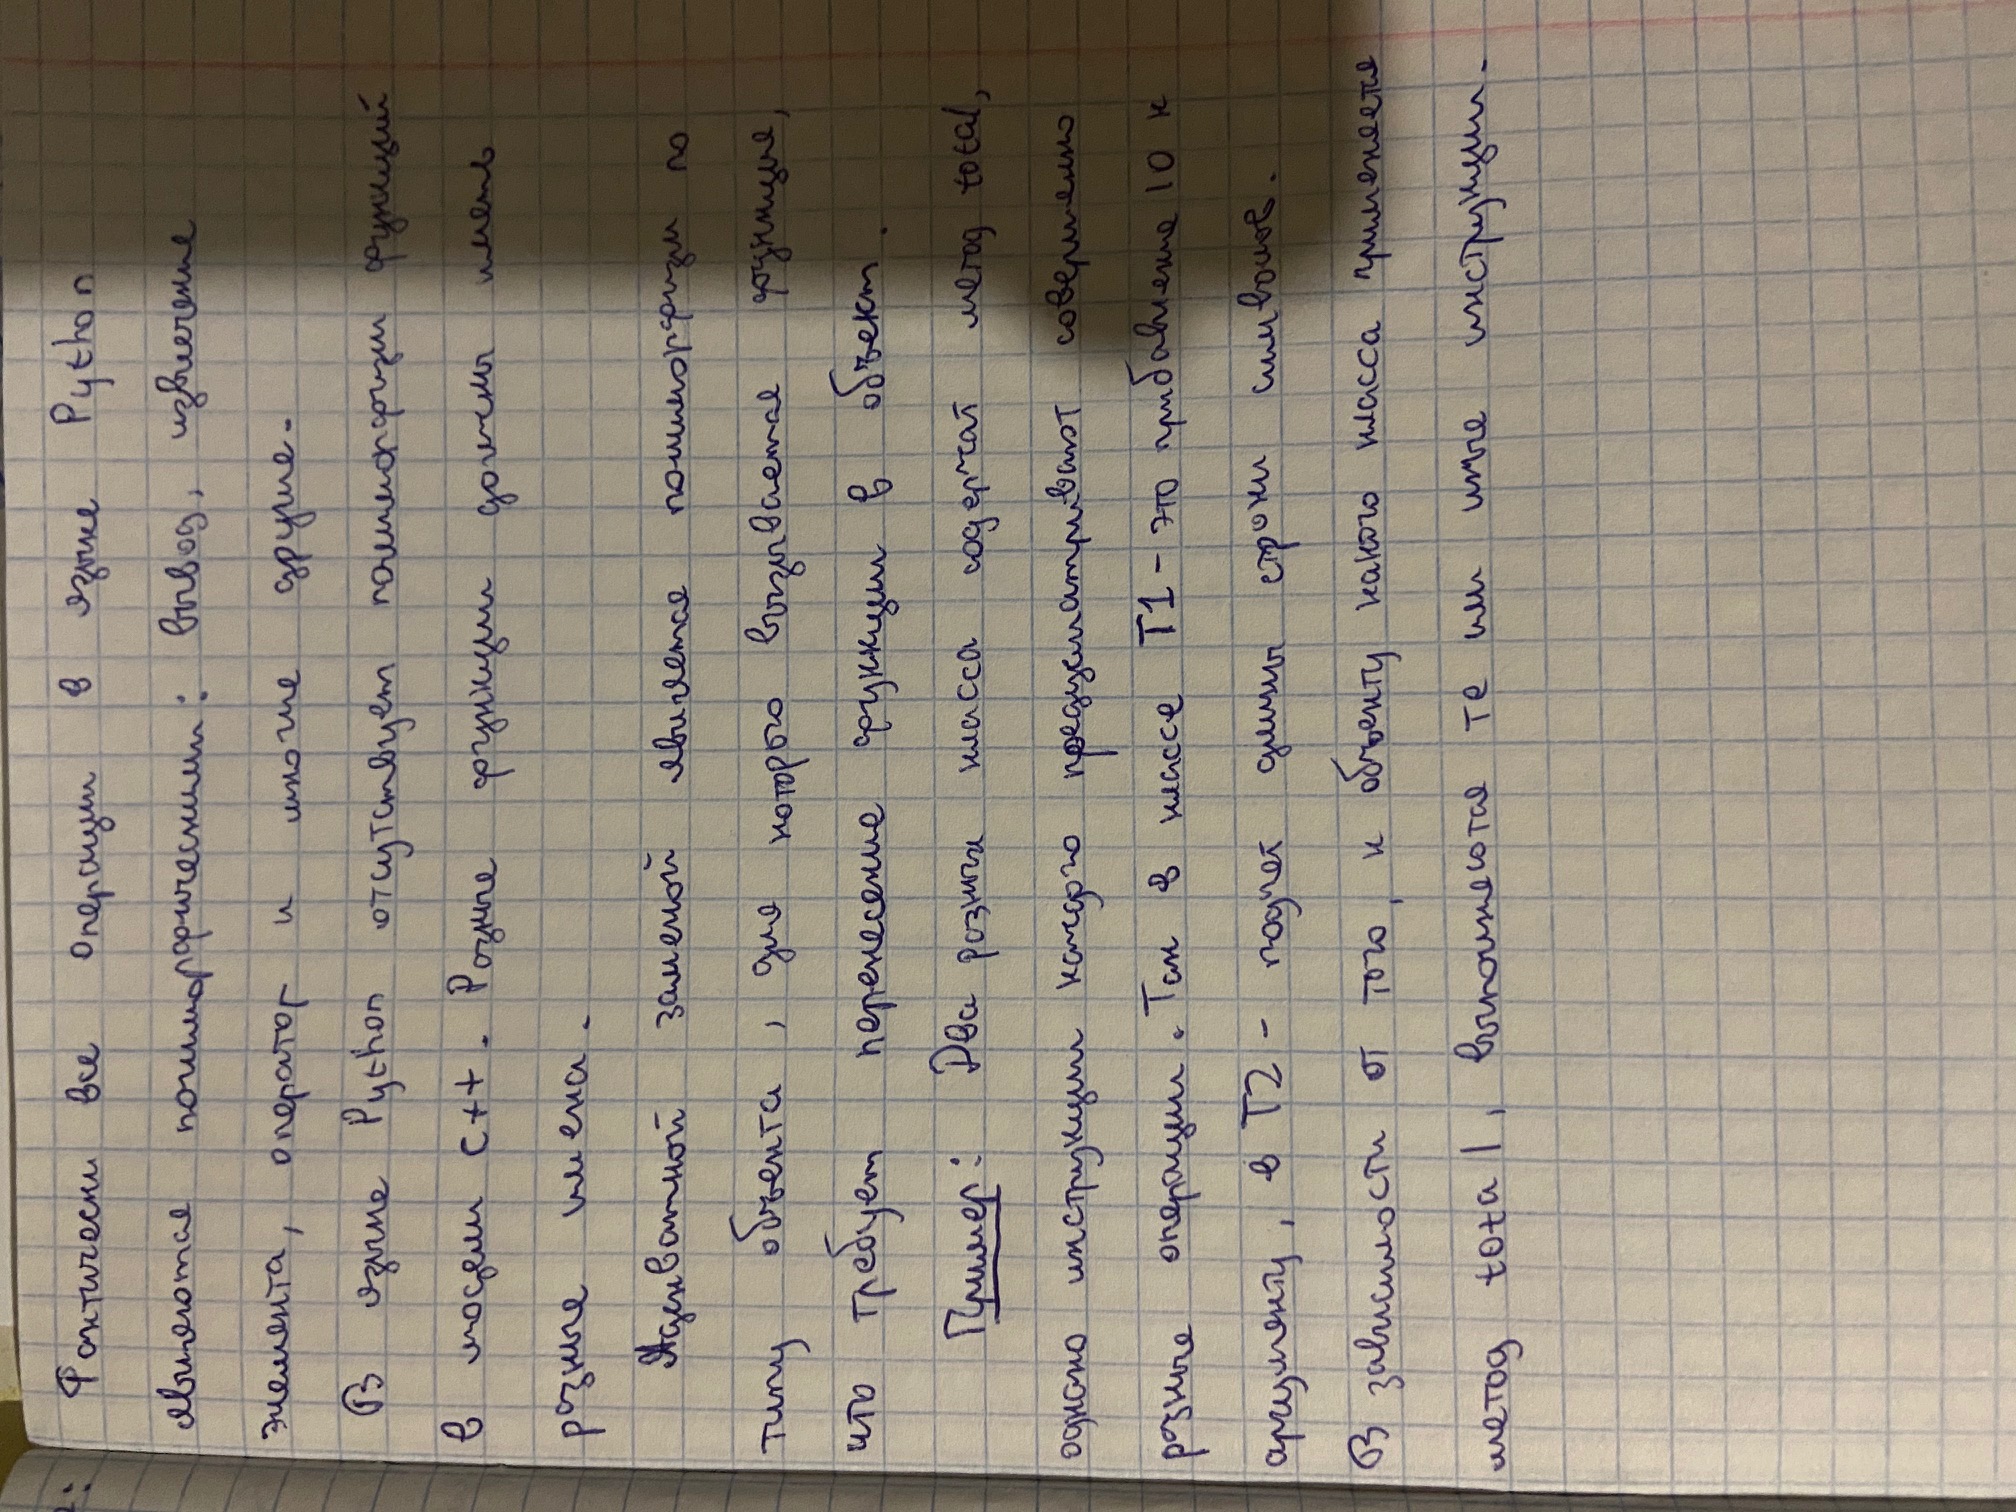 Фактически все операции в языке Python
являются полиморфическими: вывод, извлечение
элемента, оператор и многие другие.
В языке Python отсутствует полиморфизм функций
в модели C++. Разные функции должны иметь
разные имена.
Адекватной заменой является полиморфизм по
типу объекта, для которого вызывается функция,
что требует перенесение функции в объект.
Пример: Два разных класса содержат метод total,
однако инструкции каждого предусматривают совершенно
разные операции. Так в классе T1 - это прибавление 10 к
аргументу, в T2 - подчет длины строки символов.
В зависимости от того, к объекту какого класса применяется
метод total, выполняются те или иные инструкции.